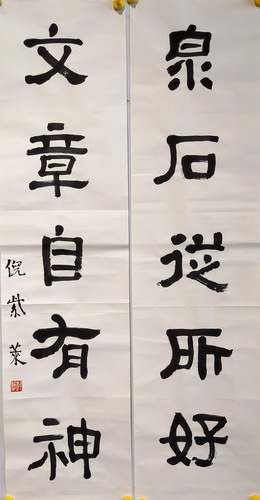 泉石從所好
文章自有神
倪紫萊